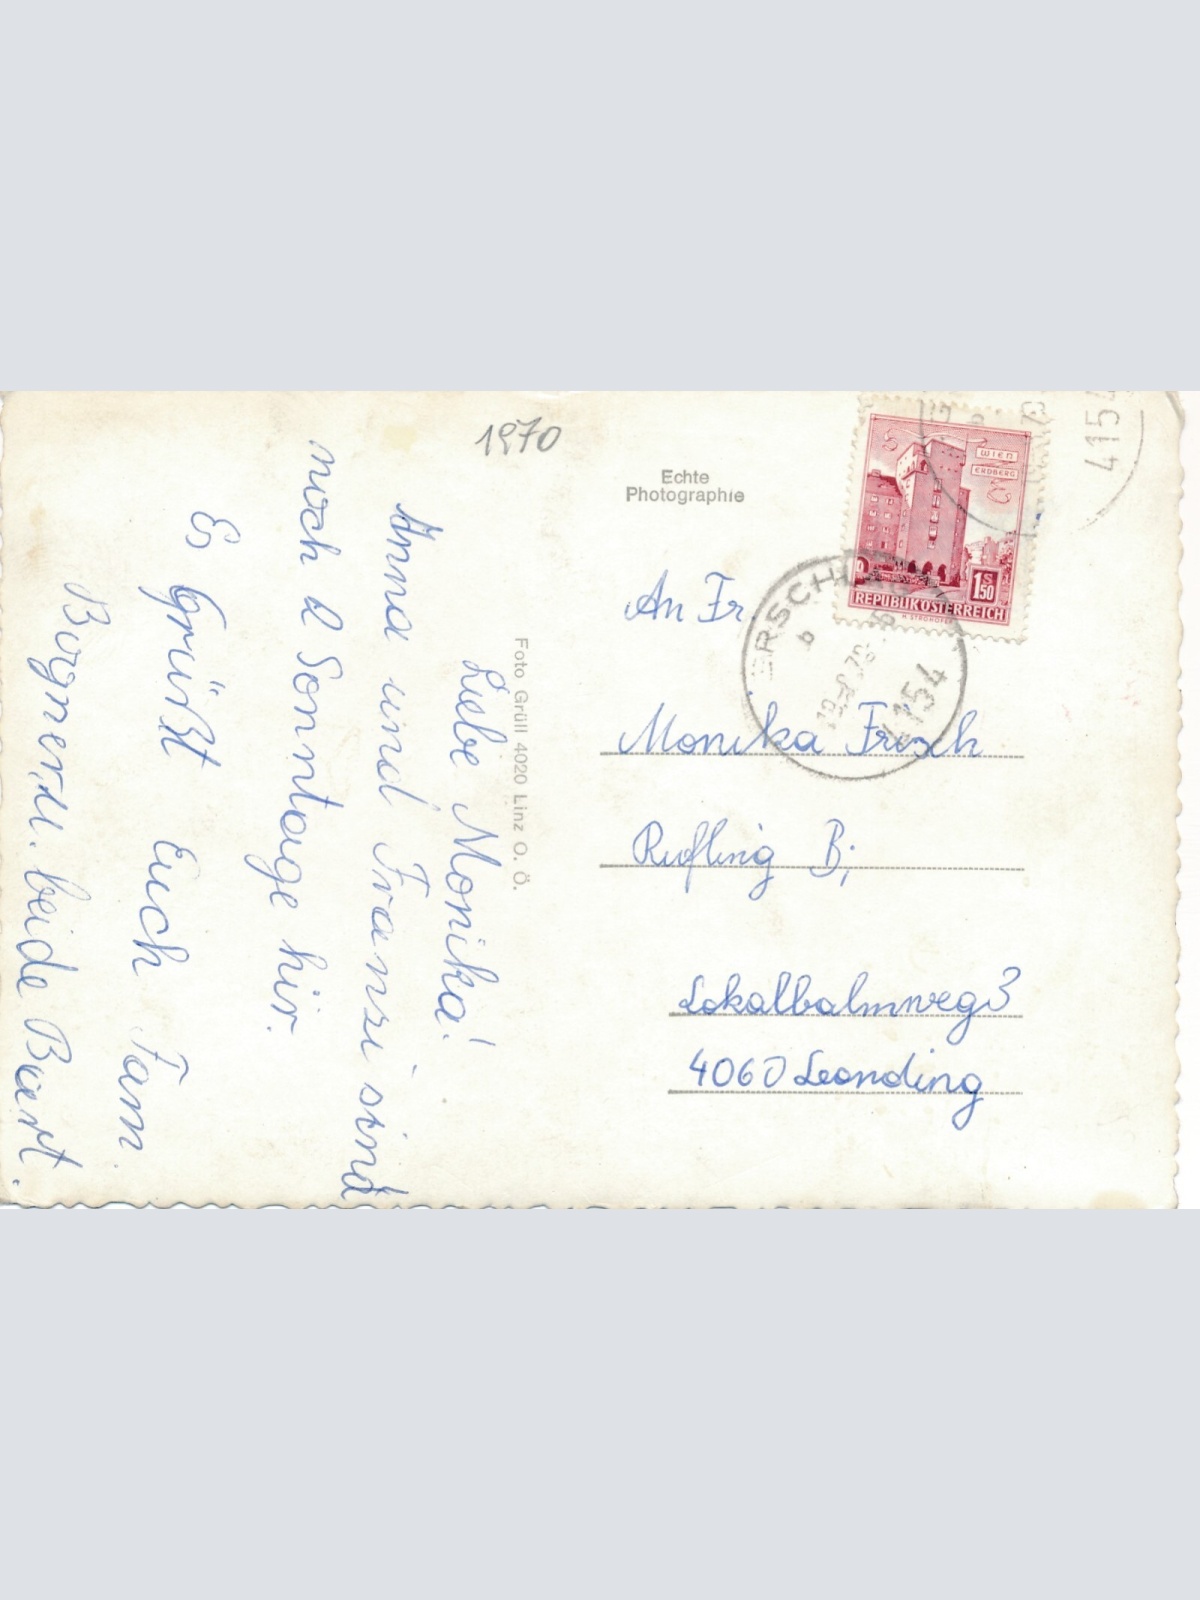 1970
Echte
Photographie
WIEN
ERDBERG
1 S 50
REPUBLIK ÖSTERREICH
H. STROHOFER
4154
b
4154
An Fr
Monika Frisch
Rufling B;
Lokalbalmweg 3
4060 Leonding
Foto Grüll 4020 Linz O. Ö.
Liebe Monika!
Anna und Franzi sind
noch 2 Sonntage hir.
Es Grüßt Euch Fam
u. beide